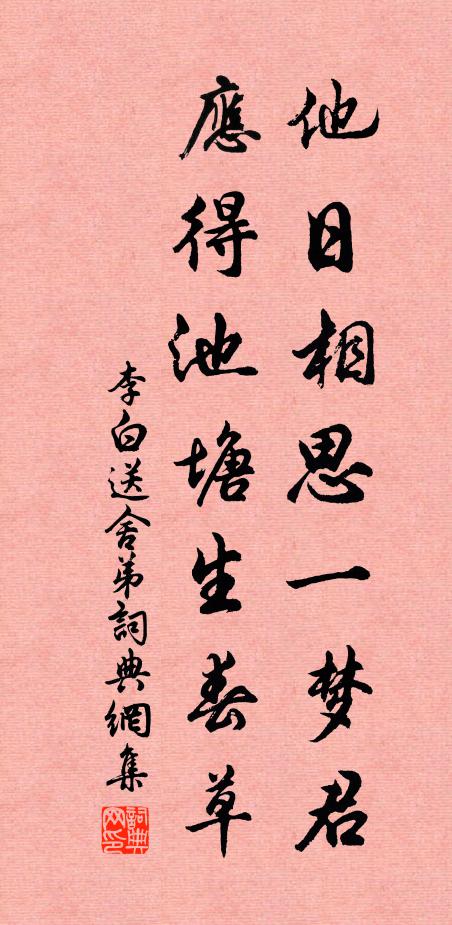 他日相思一梦君
應得池塘生春草
李白送舍弟詞典網集
詞典网印